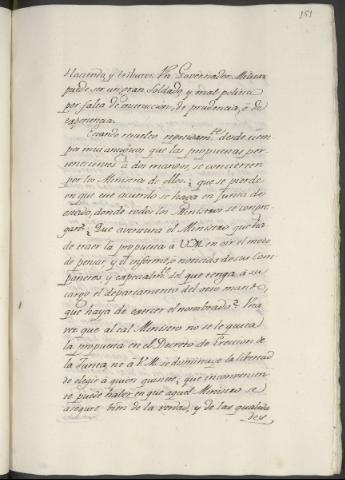 151
Hacienda, y tributos. Un Governador Militar
puede ser un gran Soldado, y mal politico
por falta de instruccion, de prudencia, ó de
experiencia.
Quando resuelve
pro inicuo que las propuestas per-
tenecientes á dos manos, se concierten
por los Ministros de ellas; que se pierde
en que ese acuerdo se haga en Junta de
estado, donde todos los Ministros se congre-
gan? Que aventura el Ministro que ha
de traer la propuesta á V.M. en oir el modo
de pensar y el informe, ó noticias de sus com-
pañeros, y especialm.te del que tenga á su
cargo el departamento del otro mando,
que haya de exercer el nombrado? Una
vez que al tal Ministro no se le quita
la propuesta en el Decreto de Ereccion de
la Junta, ni á V.M. se disminuye la libertad
de elegir á quien quisiere; que inconveniente
se puede haber en que aquel Ministro se
asegure bien de la verdad, y de las qualida
des